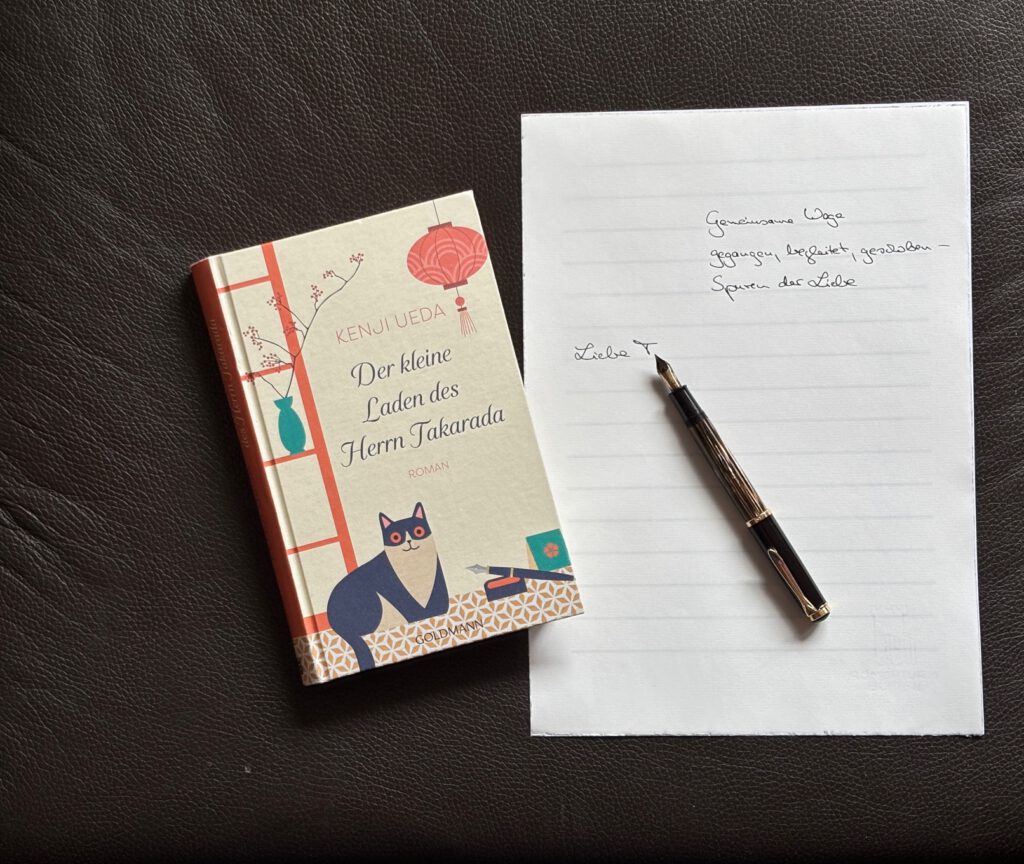 KENJI UEDA
Der kleine
Laden des
Herrn Takarada
ROMAN
GOLDMANN
des Herrn Takarada
Gemeinsame Wege
gegangen, begleitet, geschoben –
Spuren der Liebe
Liebe T